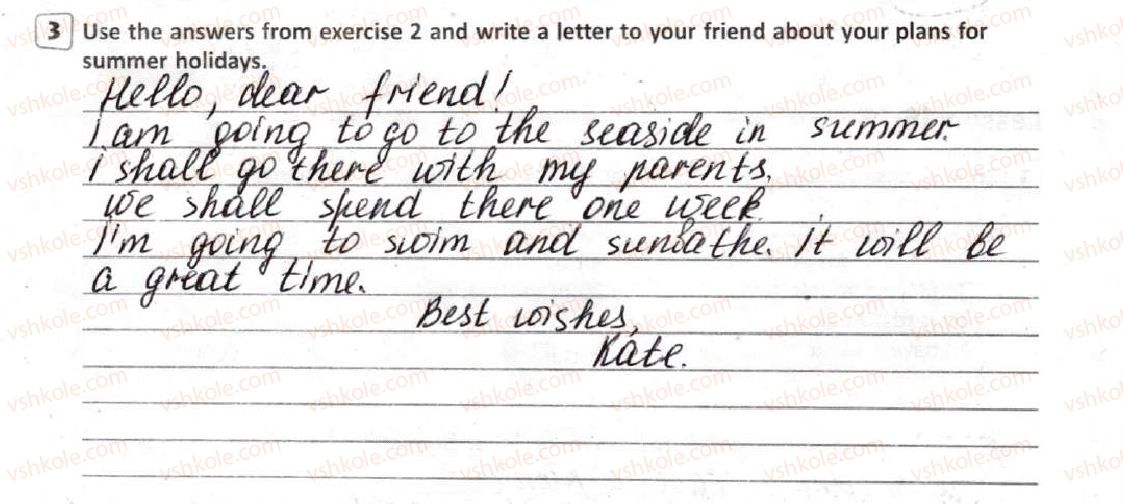 3 Use the answers from exercise 2 and write a letter to your friend about your plans for
summer holidays.
Hello, dear friend!
I am going to go to the seaside in summer.
I shall go there with my parents.
We shall spend there one week.
I'm going to swim and sunbathe. It will be
a great time.
Best wishes,
Kate.
vshkole.com